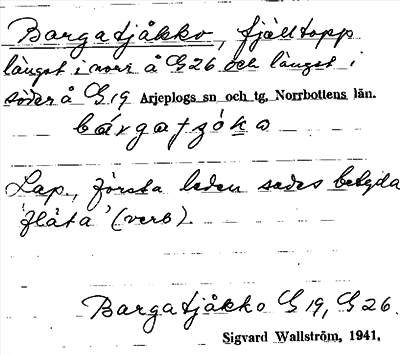 Bargatjåkko, fjälltopp
längst i norr å G 26 och längst i
söder å G 19 Arjeplogs sn och tg, Norrbottens län.
Lap., första leden sades betyda
'flåta' (verb).
Bargatjåkko G 19, G 26.
Sigvard Wallström, 1941.